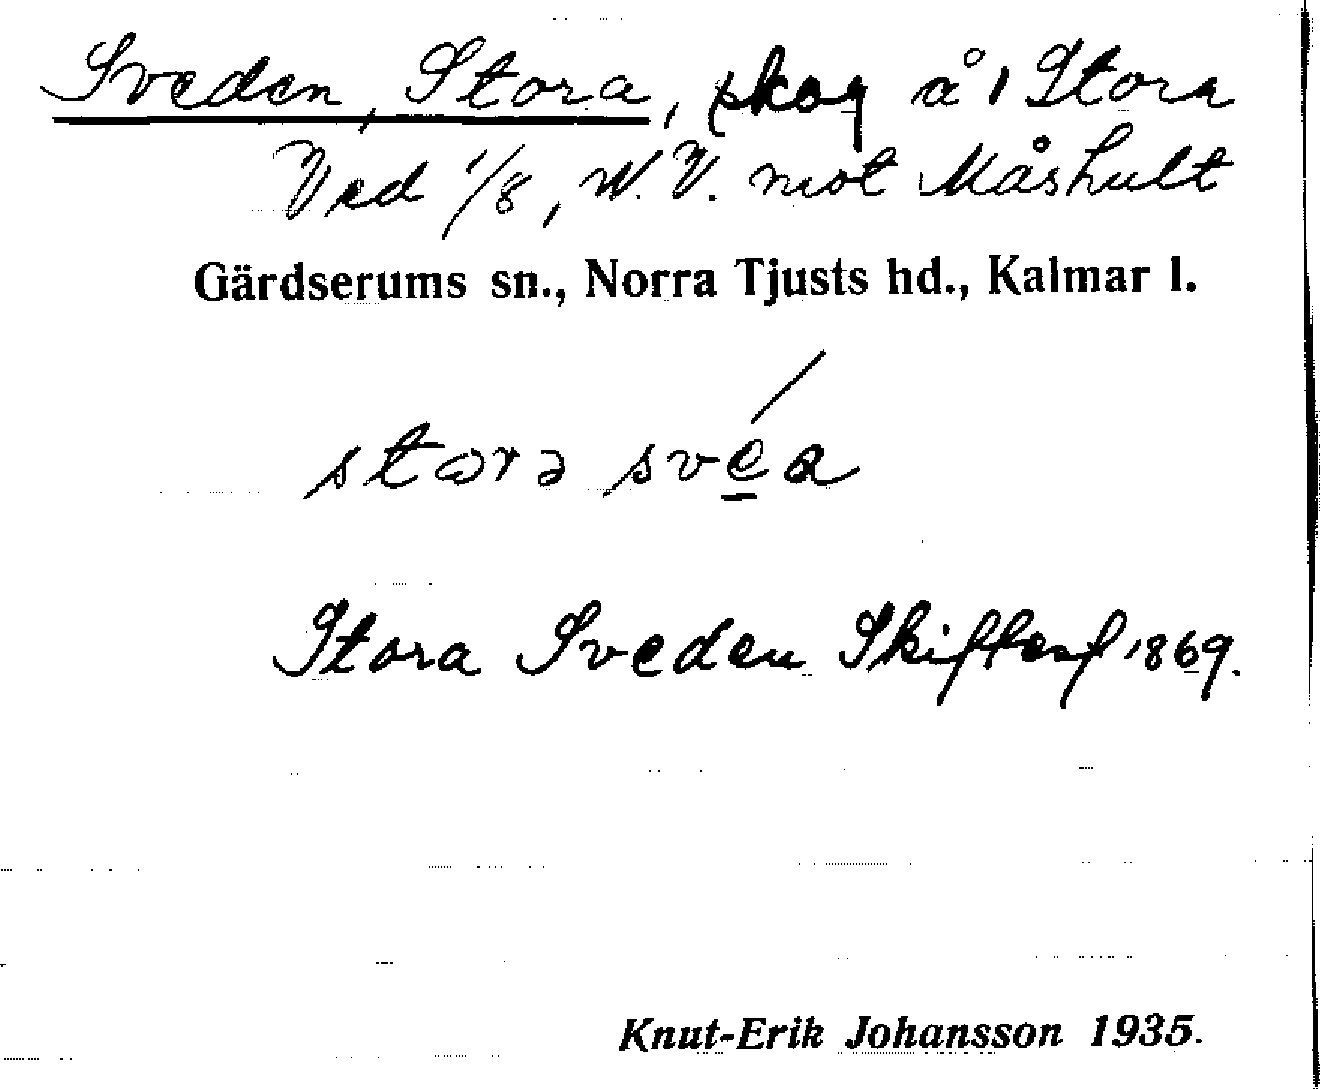 Sveden, Stora, skog å 1 Stora
Ved 1/8, N.V. mot Måshult
Gärdserums sn., Norra Tjusts hd., Kalmar l.
stora svéa
Stora Sveden Skiftesf 1869.
Knut-Erik Johansson 1935.